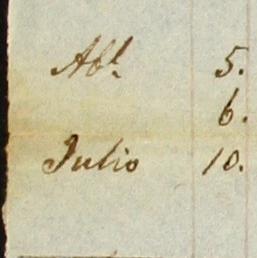 Abl. 5.
6.
Julio 10.